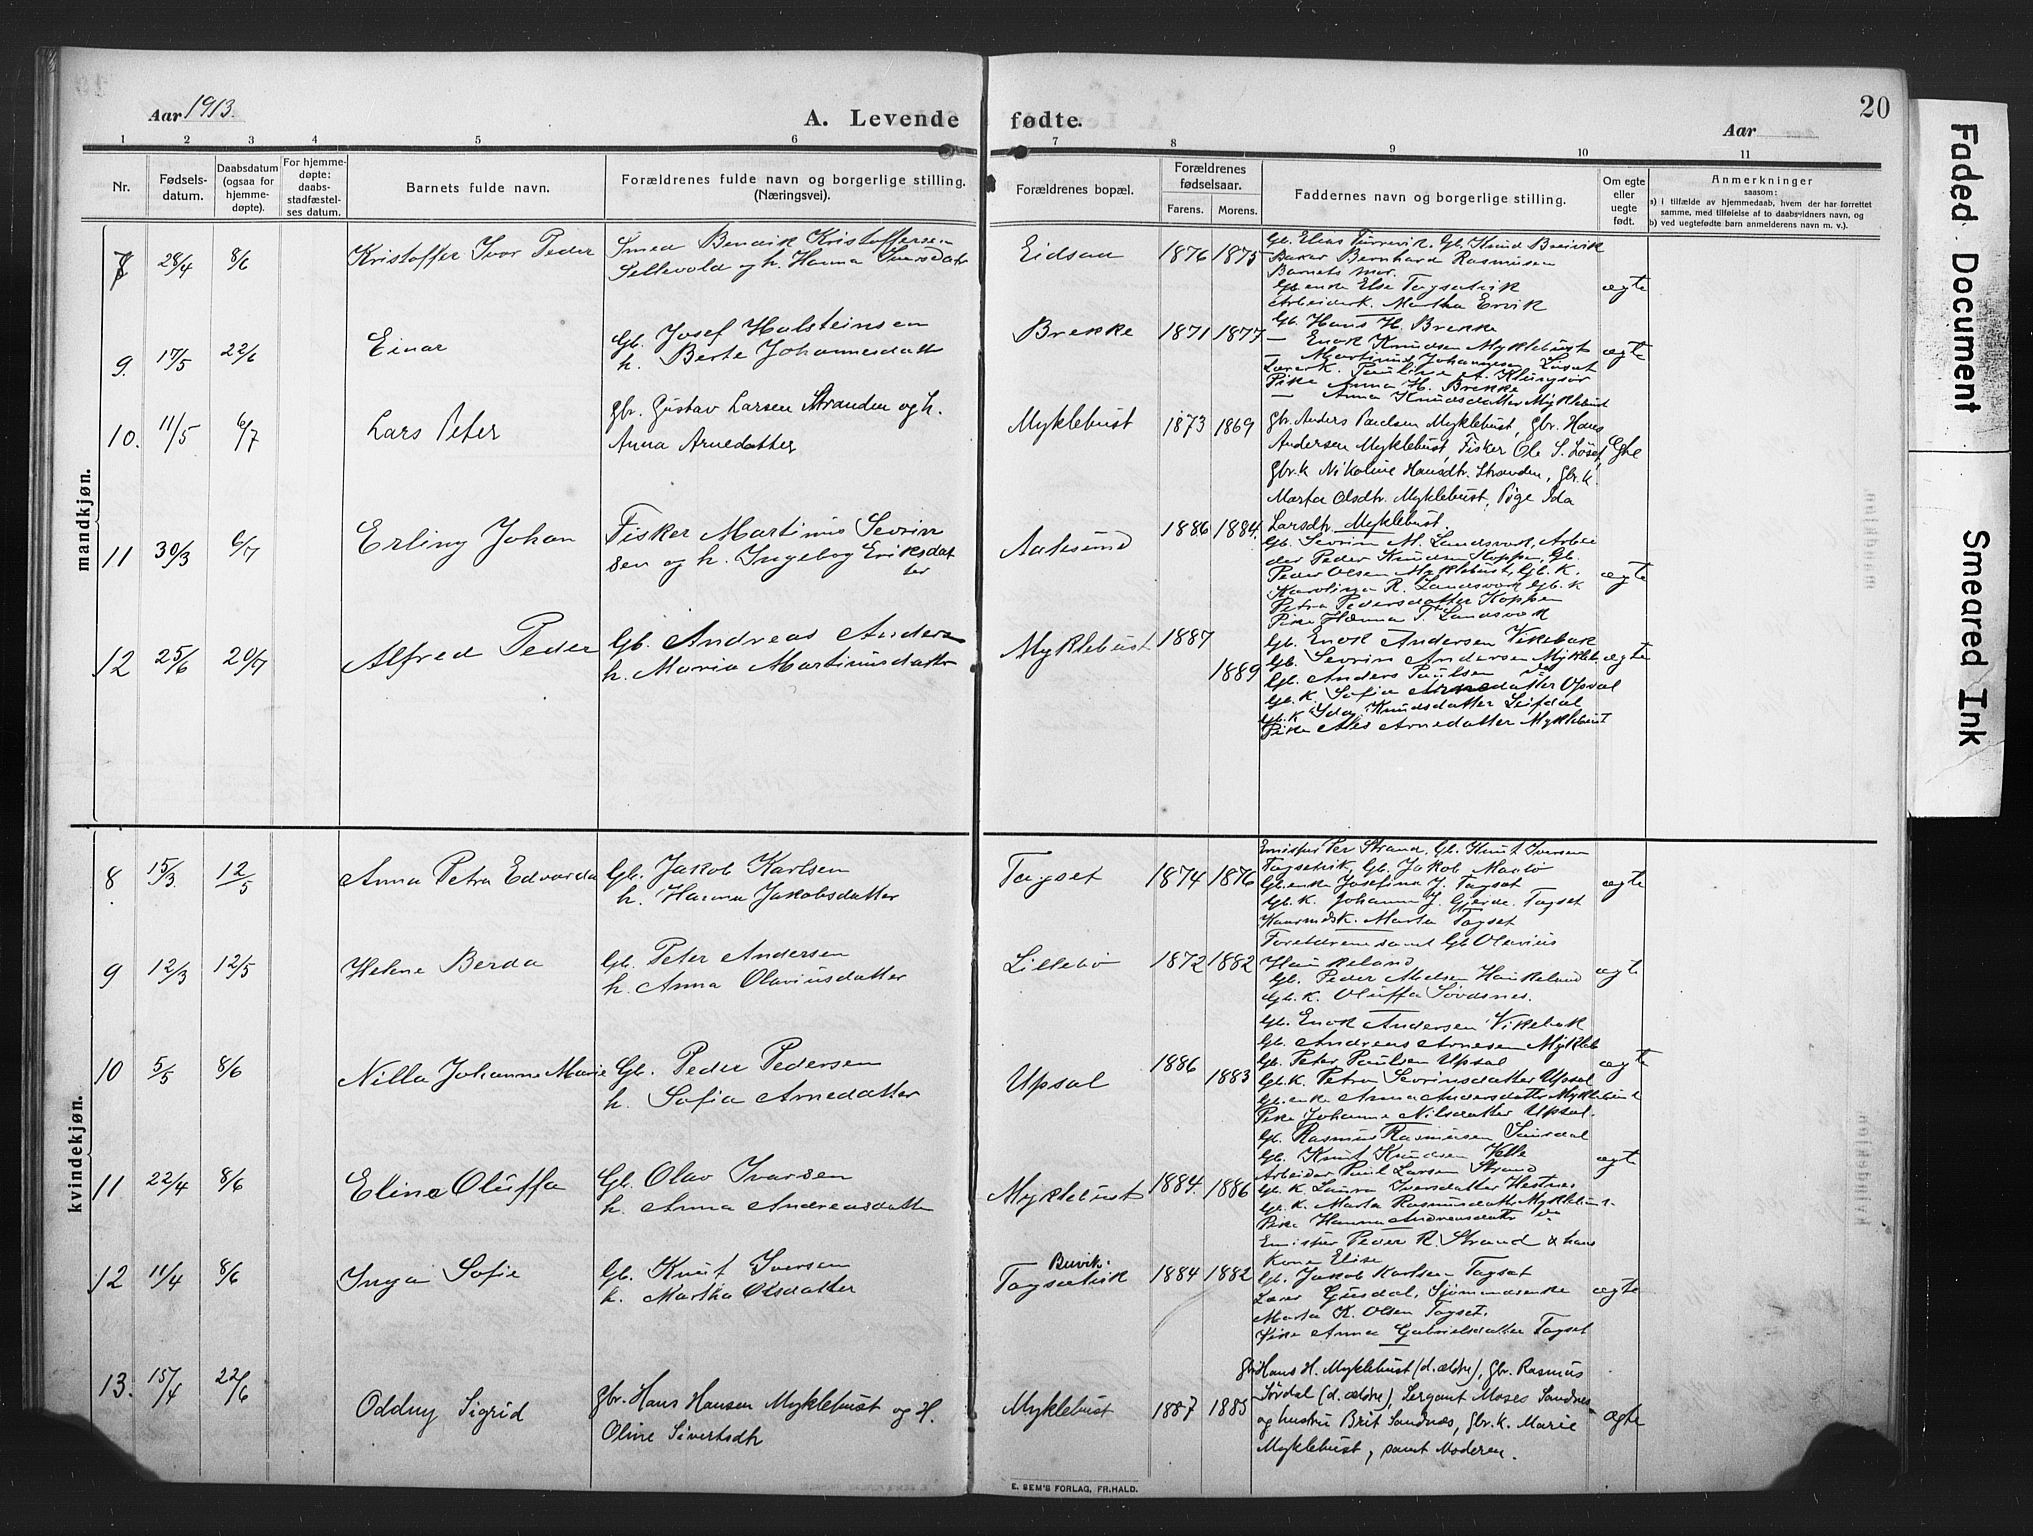 Aar 1913.
A. Levende fødte.
Aar
20
1 2 3 4 5 6 7 8 9 10 11
Nr.
Fødsels-
datum.
Daabsdatum
(ogsaa for
hjemme-
døpte).
For hjemme-
døpte:
daabs-
stadfæstel-
ses datum.
Barnets fulde navn.
Forældrenes fulde navn og borgerlige stilling.
(Næringsvei).
Forældrenes bopæl.
Forældrenes
fødselsaar.
Farens. Morens.
Faddernes navn og borgerlige stilling.
Om egte
eller
uegte
født.
Anmerkninger
saasom:
a) i tilfælde av hjemmedaab, hvem der har forrettet
samme, med tilføielse af to daabsvidners navn, og
b) ved uegtefødte barn anmelderens navn m. v.).
mandkjøn.
28/4 8/6 Kristoffer Ivar Peder
Smed Bendik Kristoffersen
Sellevold og h. Hanna Iversdatr
Eidsaa 1876 1875
Gb. Elias Gb. Knud Breivik
Baker Bernhard Rasmusen
Barnets mor.
Gb. enke Else Tagsetvik
Arbeiderk. Martha Ervik
ægte
9. 17/5 22/6 Einar
Gb. Josef Holsteinsen
h. Berte Johannesdatte
Brekke 1871 1877
Gb. Hans H. Brekke
— Enok Knudsen Myklebust
— Martinus Johannesen
Lærerk. Pauline A. Klungsør
Pike Anna H. Brekke
— Anna Knudsdatter Myklebust
ægte
10. 11/5 6/7 Lars Peter
Gbr. Gustav Larsen Stranden og h.
Anna Arnedatter
Myklebust 1873 1869
Gbr. Anders Paulsen Myklebust, Gbr. Hans
Andersen Myklebust, Fisker Ole S. Løset,
Gbr.k. Nikoline Hansdtr. Stranden, Gbr.k.
Marta Olsdtr. Myklebust, Pige Ida
Larsdtr. Myklebust.
11 30/3 6/7 Erling Johan
Fisker Martinus Sevrin
sen og h. Ingebog Eriksdat
ter
Aalesund 1886 1884.
Gb. Sevrin M. Landsverk, Arbei
der Peder Knudsen Koppen, Gb.
Peder Olsen Myklebust, Gb. K.
Karolina R. Landsverk Gb. K
Petra Pedersdatter Koppen
Pike Hanna T. Landsverk
ægte
12 25/6 20/7 Alfred Peder
Gb. Andreas Anders
h. Maria Martinusdatter
Myklebust 1887
1889
Gb. Enok Andersen Vikebak
Gb. Sevrin Andersen Mykleb
Gb. Anders Paulsen do
Gb. K. Sofia Arnedatter Upsal
Gb. K Ida Knudsdatter
Pike Arnedatter Myklebust
ægte
kvindekjøn.
8 15/3 12/5 Anna Petra Edvarda
Gb. Jakob Karlsen
h. Hanna Jakobsdatter
Tagset 1874 1876
Per Strand, Gb. Knut Iversen
Tagsetvik, Gb. Jakob
Gb. enke Josefina J. Tagset
Gb. K. Johanna J. Gjerde. Tagset
Marta Tagset
ægte
9 12/3 12/5 Helene Berda
Gb. Peter Andersen
h. Anna Olaviusdatter
Lillebø 1872 1882
Foreldrene samt Gb Olavius
Haukeland
Gb. Peder Madsen Haukeland
Gb. K. Oluffa Sørdsnes.
ægte
10 5/5 8/6 Nilla Johanne Marie
Gb. Peder Pedersen
h. Sofia Arnedatter
Upsal 1886 1883
Gb. Enok Andersen Vikebak
Gb. Andreas Arnesen Mykleb
Gb. Peter Paulsen Upsal
Gb. K. Petra Sevrinsdatter Upsal
Gb. enke Anna Andersdatter Myklebust
Pike Johanne Nilsdatter Upsal.
ægte
11 22/4 8/6 Eline Oluffa
Gb. Olav Ivarsen
h. Anna Andreasdatter
Myklebust 1884. 1886
Gb. Rasmus Rasmusen
Gb. Knut Knudsen Velle
Arbeider Paul Larsen Strand
Gb. K. Laura Iversdatter Hestnes
Gb. K. Marta Rasmusdatter Myklebust
Pike Hanna Andreasdatter do
ægte
12 11/4 8/6 Inga Sofie
Gb. Knut Iversen
h. Martha Olsdatter
Brevik.
Tagsetvik 1884 1882
Peder R. Strand & hans
Kone Elise
Gb. Jakob Karlsen Tagset
Lærer Gusdal, Sjømandsenke
Marta K. Olsen Tagset.
Pike Anna Gabrielsdatter Tagset
ægte
13. 15/4 22/6 Oddny Sigrid
Gbr. Hans Hansen Myklebust og H.
Oline Sivertsdtr
Myklebust 1887 1885
Gbr. Hans H. Myklebust (d. ældre), Gbr. Rasmus
Sørdal (d. ældre), Sergant Moses Sandnes
og hustru Brit Sandnæs, Gbr. k. Marie
Myklebust, samt Moderen.
ægte
E. SEM'S FORLAG, FR.HALD.
Faded Document
Smeared Ink